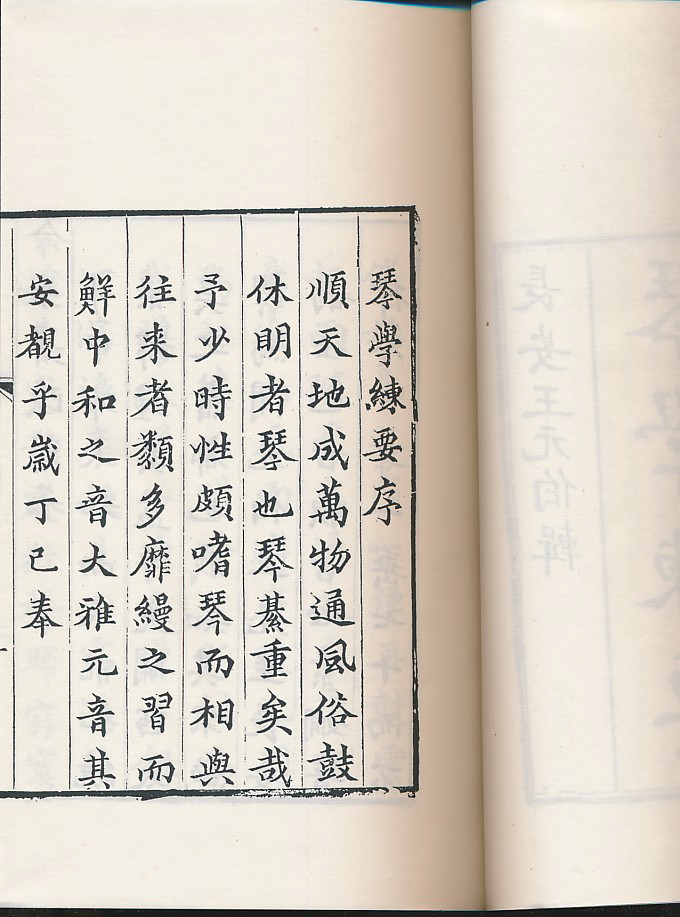 琴學練要序
順天地成萬物通風俗鼓
休明者琴也琴綦重矣哉
予少時性頗嗜琴而相與
往来者類多靡縵之習而
鮮中和之音大雅元音其
安覩乎嵗丁已奉
長安王元伯輯